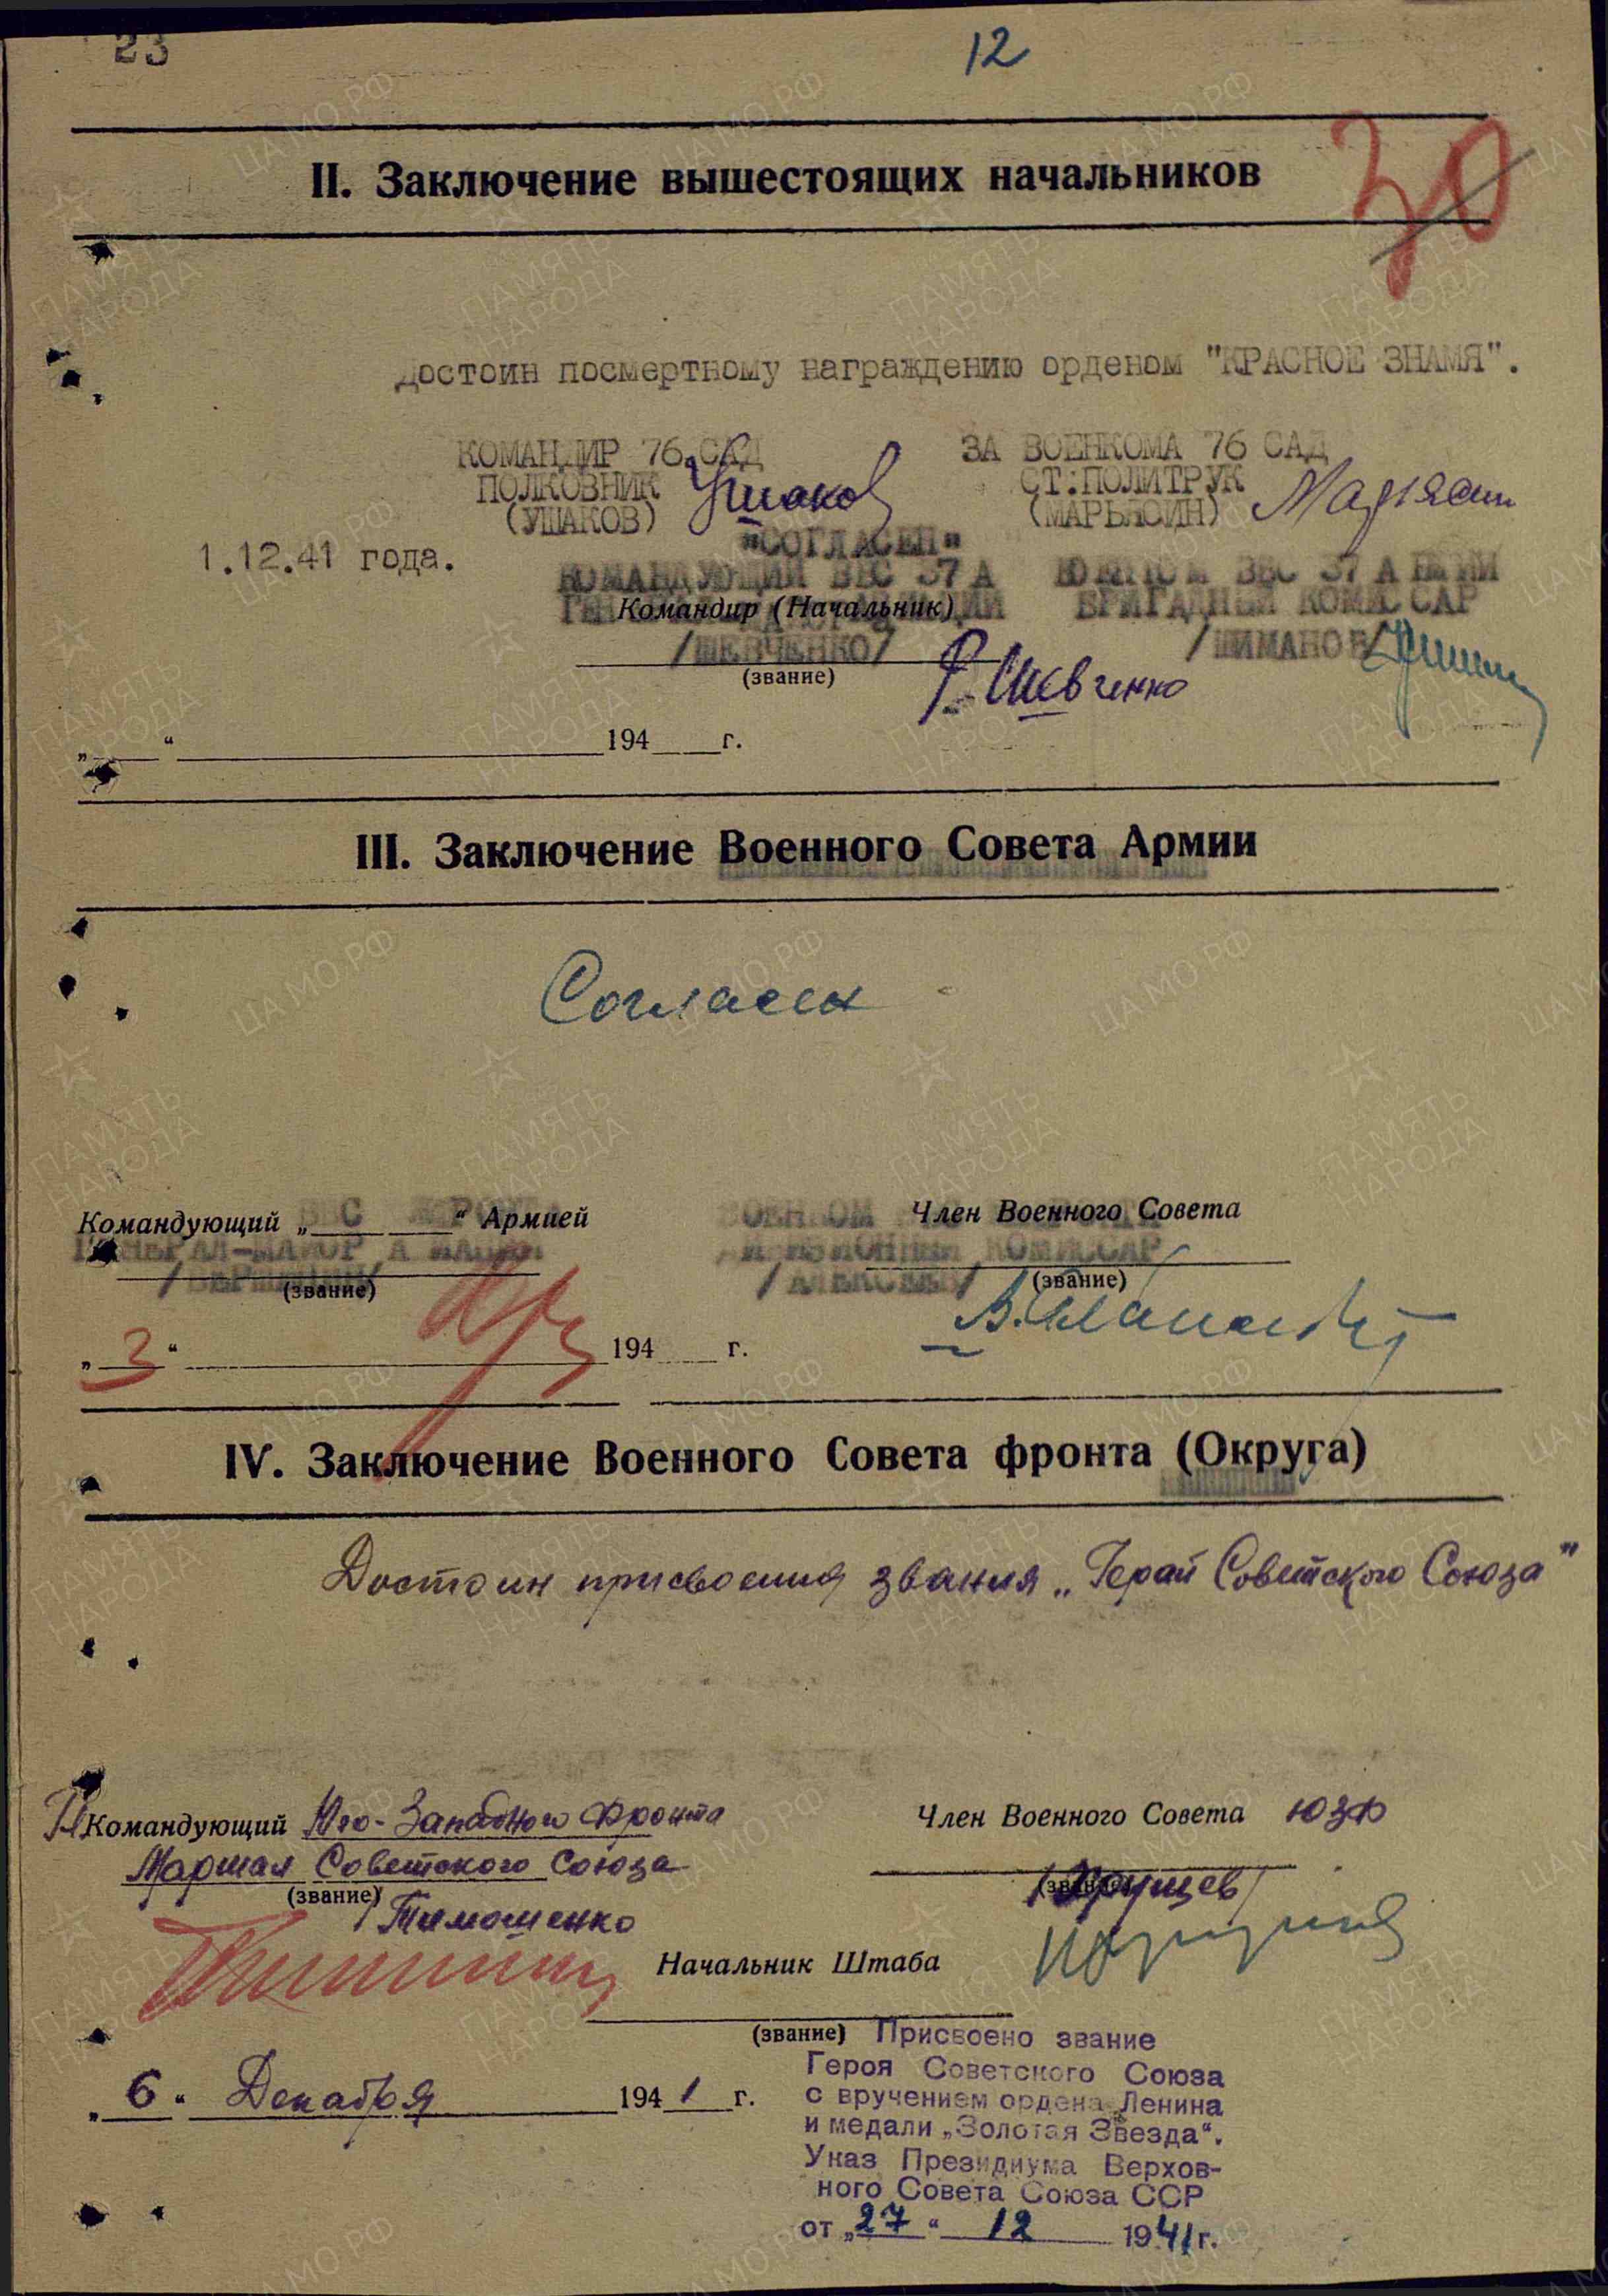 23
12
30
II. Заключение вышестоящих начальников
достоин посмертному награждению орденом "КРАСНОЕ ЗНАМЯ".
КОМАНДИР 76 САД ЗА ВОЕНКОМА 76 САД
ПОЛКОВНИК Ушаков СТ:ПОЛИТРУК
(УШАКОВ) (МАРЬЯСИН) Марьясин
"СОГЛАСЕН"
1.12.41 года.
КОМАНДУЮЩИЙ ВВС 37 А ВОЕНКОМ ВВС 37 АРМИИ
Командир (Начальник) БРИГАДНЫЙ КОМИССАР
/ШЕВЧЕНКО/ /ШИМАНОВ/
(звание) Шевченко
„ “ 194 г.
III. Заключение Военного Совета Армии
Согласен
ВВС ФРОНТА ВОЕНКОМ
Командующий „ “ Армией Член Военного Совета
ГЕНЕРАЛ-МАЙОР АВИАЦИИ ДИВИЗИОННЫЙ КОМИССАР
/ВЕРШИНИН/ /АЛЕКСЕЕВ/
(звание) (звание)
„3“ 194 г.
IV. Заключение Военного Совета фронта (Округа)
Достоин присвоения звания „Герой Советского Союза"
Командующий Юго-Западного Фронта Член Военного Совета ЮЗФ
Маршал Советского Союза
(звание) (звание)
/Тимошенко /Хрущев/
Начальник Штаба
(звание) Присвоено звание
Героя Советского Союза
с вручением ордена Ленина
и медали „Золотая Звезда“.
Указ Президиума Верхов-
ного Совета Союза ССР
от „27“ 12 1941г.
„6“ Декабря 1941 г.
ПАМЯТЬ НАРОДА
ЦА МО.РФ